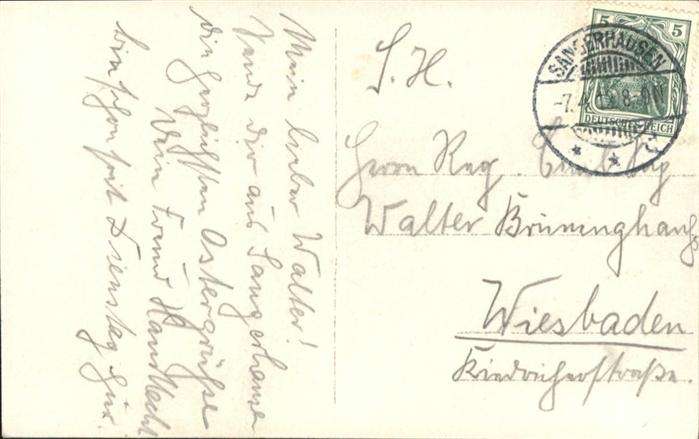 Mein lieber Walter!
Sende dir aus Sangerhausen
die herzlichsten Ostergrüße
Dein Freund
bin schon seit Dienstag hier.
S. H.
Herrn Reg.
Walter Brüninghaus
Wiesbaden
SANGERHAUSEN
-7.4. 8-9N
5 5
DEUTSCHES REICH